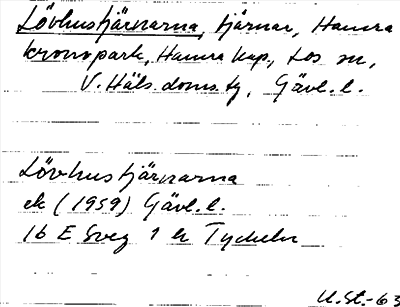 Lövhustjärnarna, tjärnar, Hamra
kronopark, Hamra kap., Los sn,
V. Häls. doms. tg, Gävl. l.
Lövhustjärnarna
ek (1959) Gävl. l.
16 E Sveg 1 h
U. St. -63